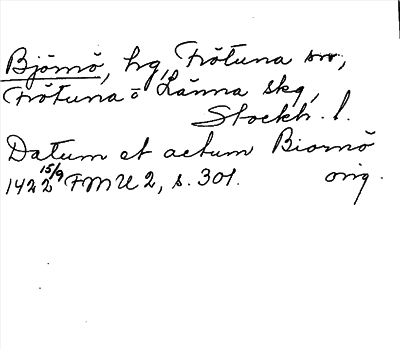 Björnö, hg, Frötuna sn,
Frötuna o Länna skg,
Stockh. l.
Datum et actum Biornö
1422 15/9 FMU 2, s. 301. orig.